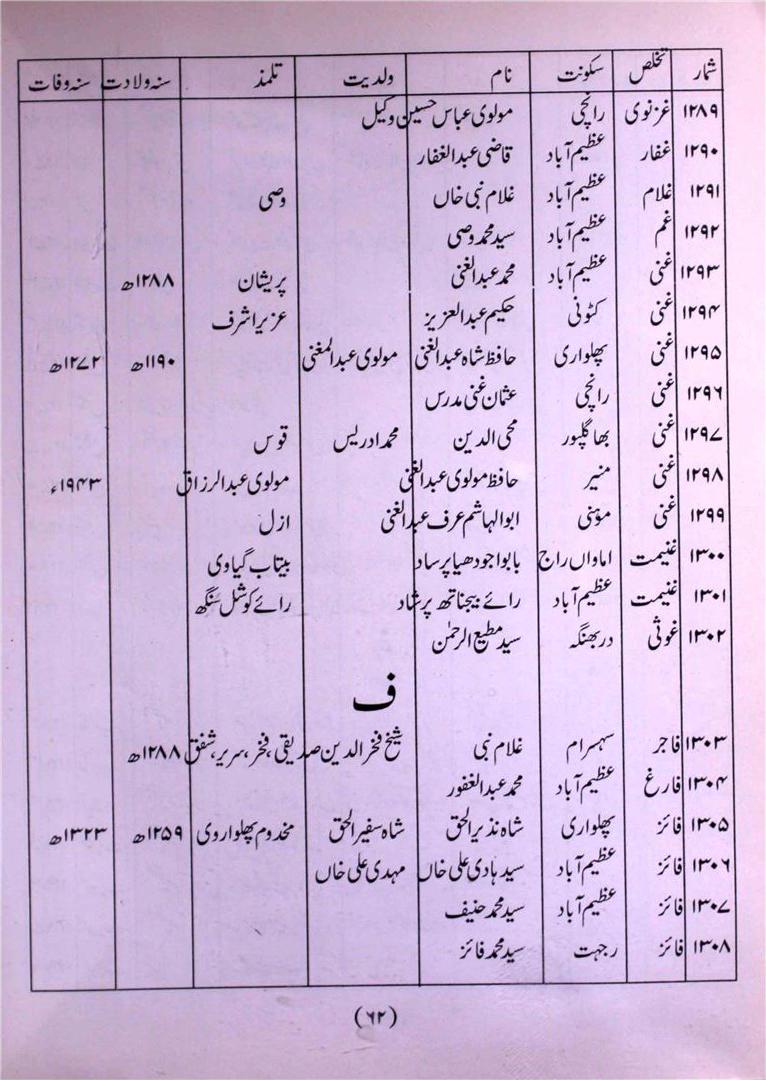 شمار تخلص سکونت نام ولدیت تلمذ سنہ ولادت سنہ وفات
۱۲۸۹ غزنوی رانچی مولوی عباس حسین وکیل
۱۲۹۰ غفار عظیم آباد قاضی عبدالغفار
۱۲۹۱ غلام عظیم آباد غلام نبی خاں وصی
۱۲۹۲ غم عظیم آباد سید محمد وصی
۱۲۹۳ غنی عظیم آباد محمد عبدالغنی پریشان ۱۲۸۸ھ
۱۲۹۴ غنی کٹونی حکیم عبدالعزیز عزیز اشرف
۱۲۹۵ غنی پھلواری حافظ شاہ عبدالغنی مولوی عبدالمغنی ۱۱۹۰ھ ۱۲۷۲ھ
۱۲۹۶ غنی رانچی عثمان غنی مدرس
۱۲۹۷ غنی بھاگلپور محی الدین محمد ادریس قوس
۱۲۹۸ غنی منیر حافظ مولوی عبدالغنی مولوی عبدالرزاق ۱۹۴۳ء
۱۲۹۹ غنی موہنی ابوالہاشم عرف عبدالغنی ازل
۱۳۰۰ غنیمت اماواں راج بابو اجودھیا پرساد بیتاب گیاوی
۱۳۰۱ غنیمت عظیم آباد رائے بیجناتھ پرشاد رائے کوشل سنگھ
۱۳۰۲ غوثی دربھنگہ سید مطیع الرحمٰن
ف
۱۳۰۳ فاجر سہسرام غلام نبی شیخ فخر الدین صدیقی، فخر، سریر، شفق ۱۲۸۸ھ
۱۳۰۴ فارغ عظیم آباد محمد عبدالغفور
۱۳۰۵ فائز پھلواری شاہ نذیر الحق شاہ سفیر الحق مخدوم پھلواروی ۱۲۵۹ھ ۱۳۲۳ھ
۱۳۰۶ فائز عظیم آباد سید ہادی علی خاں مہدی علی خاں
۱۳۰۷ فائز عظیم آباد سید محمد حنیف
۱۳۰۸ فائز رجہت سید محمد فائز
(۶۲)